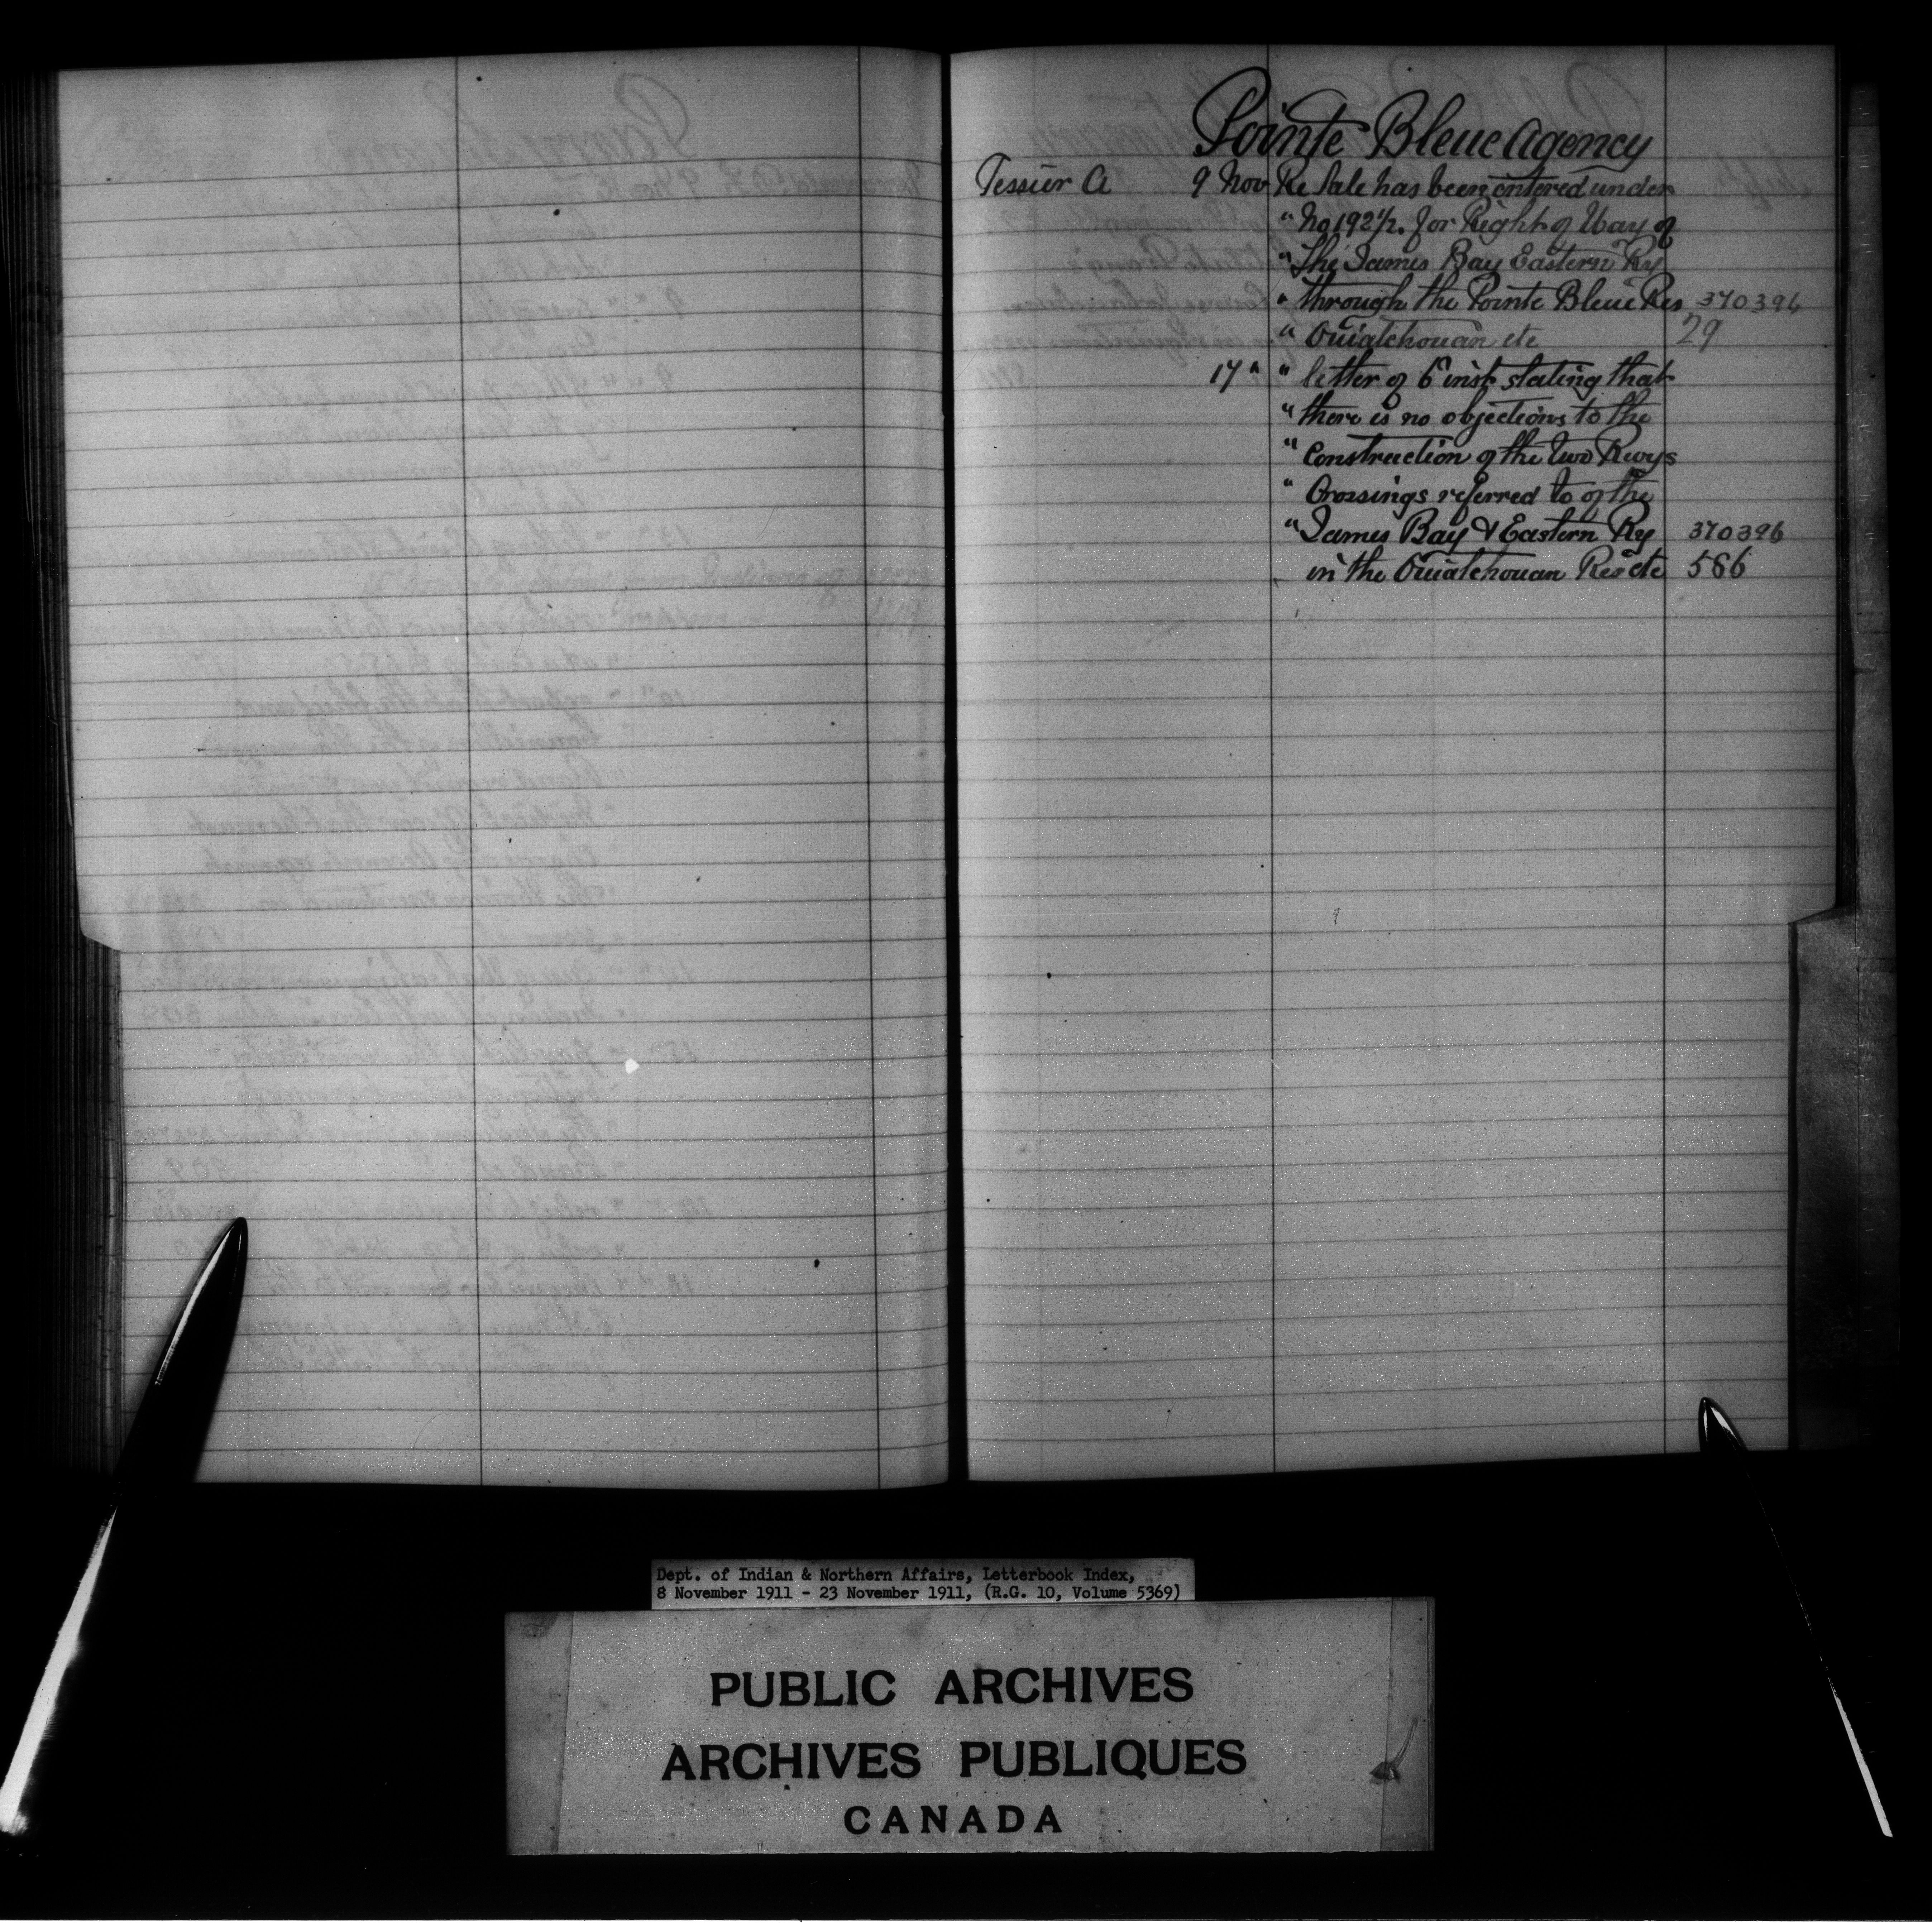 Pointe Bleue Agency
Tessier A 9 Nov Re Sale has been entered under
" No 192½. for Right of Way of
" The James Bay Eastern Ry
" through the Pointe Bleue Res 370396
" Ouiatchouan etc 29
17 " " letter of 6 inst stating that
" there is no objections to the
" Construction of the two Rwys
" Crossings referred to of the
" James Bay & Eastern Ry 370396
in the Ouiatchouan Res etc 566
Dept. of Indian & Northern Affairs, Letterbook Index,
8 November 1911 - 23 November 1911, (R.G. 10, Volume 5369)
PUBLIC ARCHIVES
ARCHIVES PUBLIQUES
CANADA